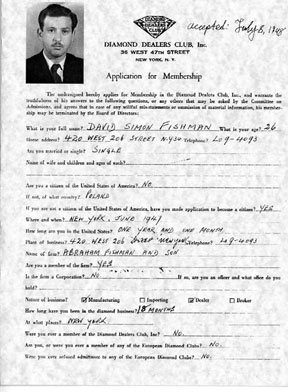 accepted: July 8, 1948
DIAMOND
DEALERS
CLUB
DIAMOND DEALERS CLUB, Inc.
36 WEST 47TH STREET
NEW YORK, N. Y.
Application for Membership
The undersigned hereby applies for Membership in the Diamond Dealers Club, Inc., and warrants the
truthfulness of his answers to the following questions, or any others that may be asked by the Committee on
Admissions, and agrees that in case of any willful mis-statements or omission of material information, his member-
ship may be terminated by the Board of Directors:
What is your full name? DAVID SIMON FISHMAN What is your age? 26
Home address? 420 WEST 206 STREET N.Y.34 Telephone? LO9-4093
Are you married or single? SINGLE
Name of wife and children and ages of each?
Are you a citizen of the United States of America? NO.
If not, of what country? POLAND
If you are not a citizen of the United States, have you made application to become a citizen? YES
Where and when? NEW YORK. JUNE 1947
How long are you in the United States? ONE YEAR AND ONE MONTH
Place of business? 420 WEST 206 STREET NEW YORK Telephone? LO9-4093
Name of firm? ABRAHAM FISHMAN AND SON
Are you a member of the firm? YES
Is the firm a Corporation? NO If so, are you an officer and what office do you
hold?
Nature of business? Manufacturing Importing Dealer Broker
How long have you been in the diamond business? 18 MONTHS
At what place? NEW YORK
Were you ever a member of the Diamond Dealers Club, Inc? NO.
Are you, or were you ever a member of any of the European Diamond Clubs? NO.
Were you ever refused admittance to any of the European Diamond Clubs? NO.